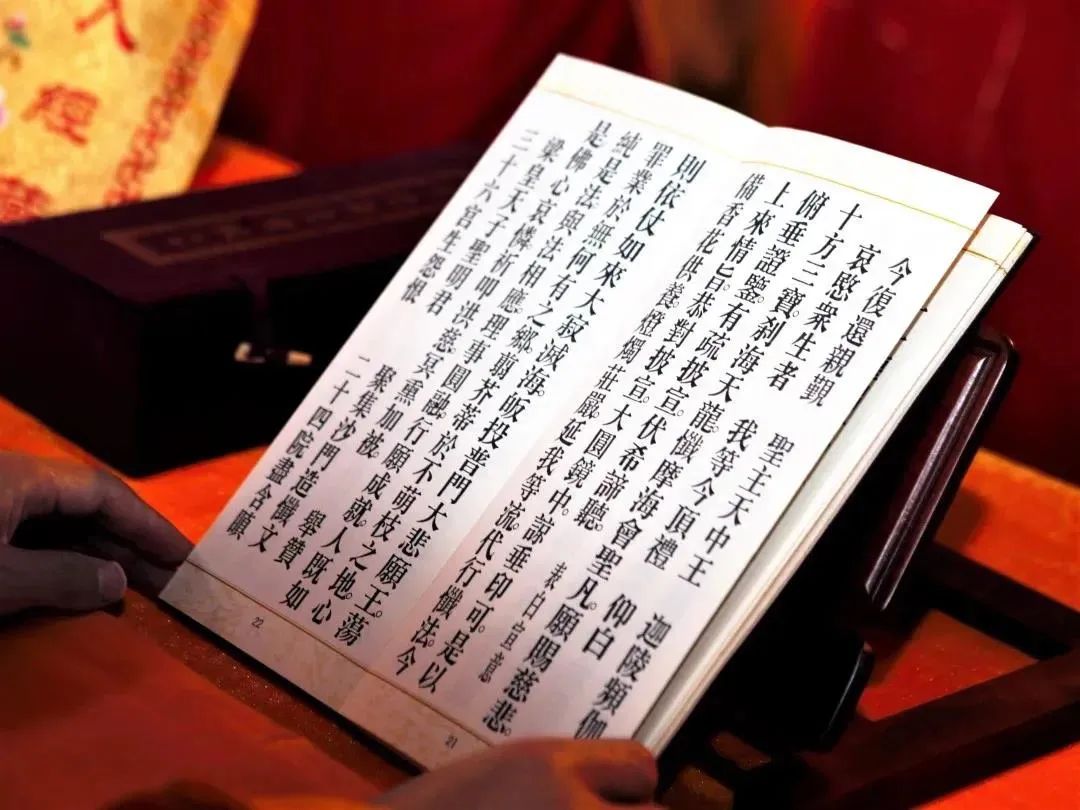 今復還親覲　聖主天中王　迦陵頻伽
哀愍衆生者　我等今頂禮　仰白
十方三寶。剎海天龍。懺摩海會聖凡。願賜慈悲。
俯垂證鑒。有疏披宣。伏希諦聽。　表白宣意
上來情旨。恭對披宣。大圓鏡中。諒垂印可。是以
備香花供養。燈燭莊嚴。延我等流。代行懺法。今
則依仗如來大寂滅海。皈投普門大悲願王。蕩
罪業於無何有之鄉。翦芥蒂於不萌枝之地。心
純是法。與法相應。理事圓融。行願成就。人既如
是佛心哀憐祈叩洪慈冥熏加被　舉贊
梁皇天子聖明君　聚集沙門造懺文
三十六宮生怨恨　二十四院盡含願
21
22
經